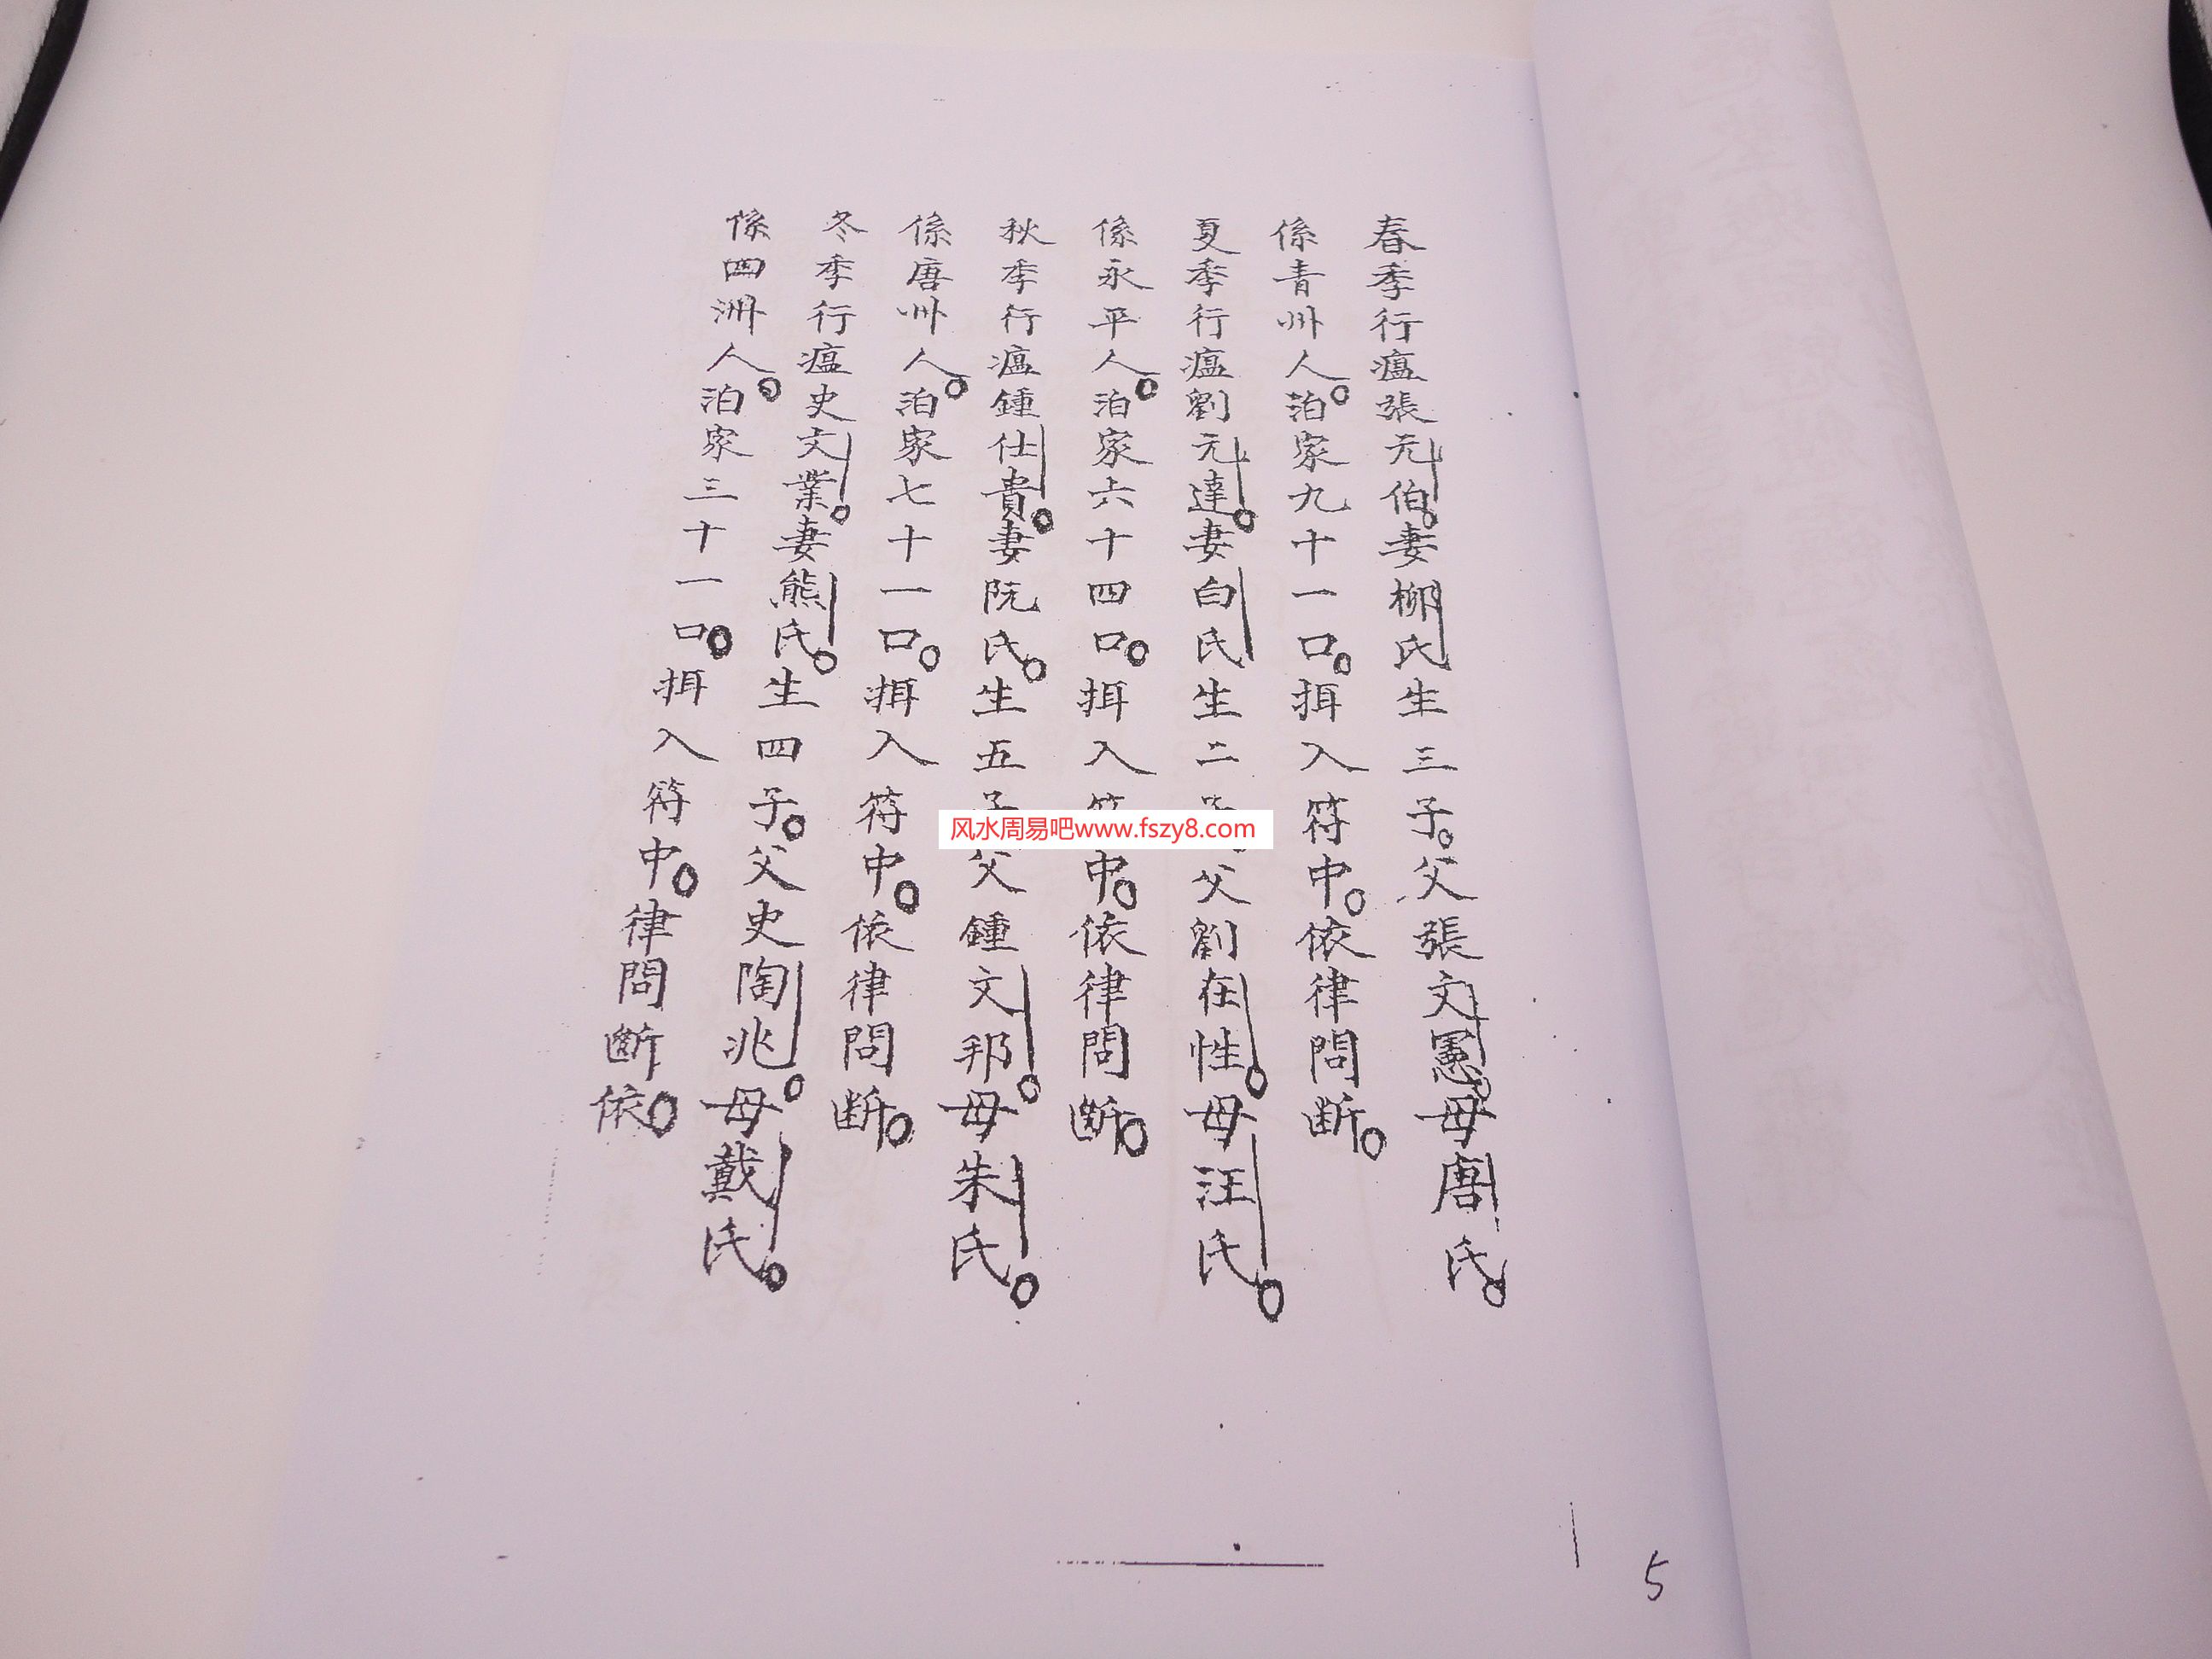 春季行瘟張元伯。妻柳氏生三子。父張文憲。母唐氏。
係青州人。泊家九十一口。揖入符中。依律問斷。
夏季行瘟劉元達。妻白氏生二子。父劉在性。母汪氏。
係永平人。泊家六十四口。揖入符中。依律問斷。
秋季行瘟鍾仕貴。妻阮氏。生五子父鍾文邦。母朱氏。
係唐州人。泊家七十一口。揖入符中。依律問斷。
冬季行瘟史文業。妻熊氏。生四子。父史陶兆。母戴氏。
係四洲人。泊家三十一口。揖入符中。律問斷依。
风水周易吧www.fszy8.com
5